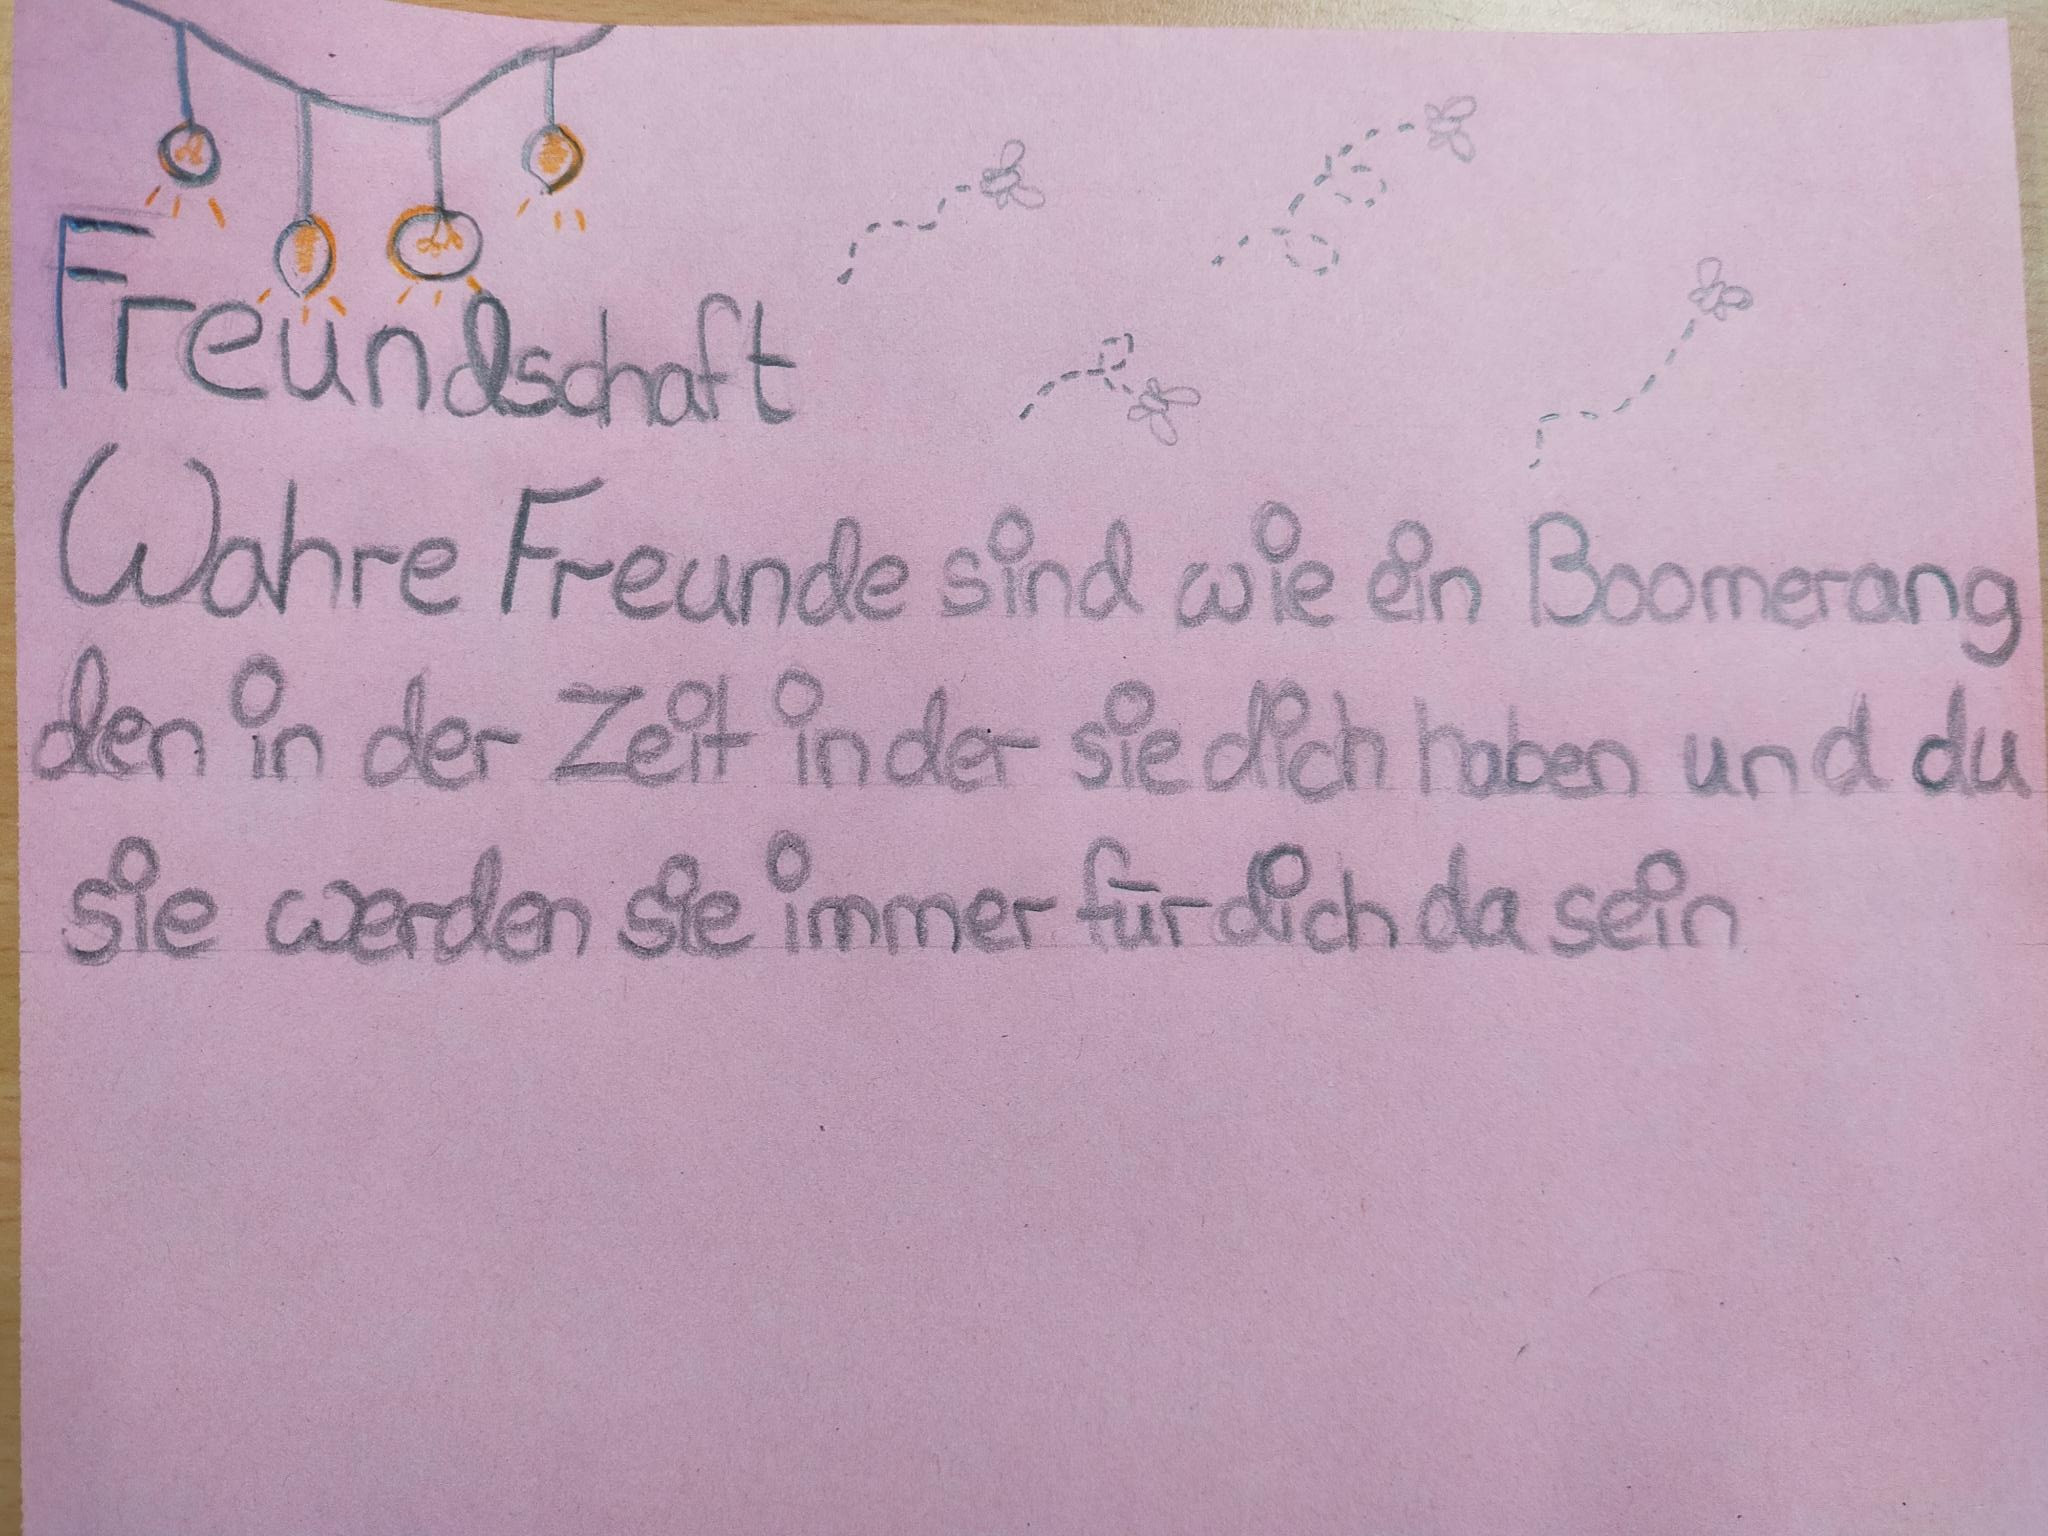 Freundschaft
Wahre Freunde sind wie ein Boomerang
den in der Zeit in der sie dich haben und du
sie werden sie immer für dich da sein